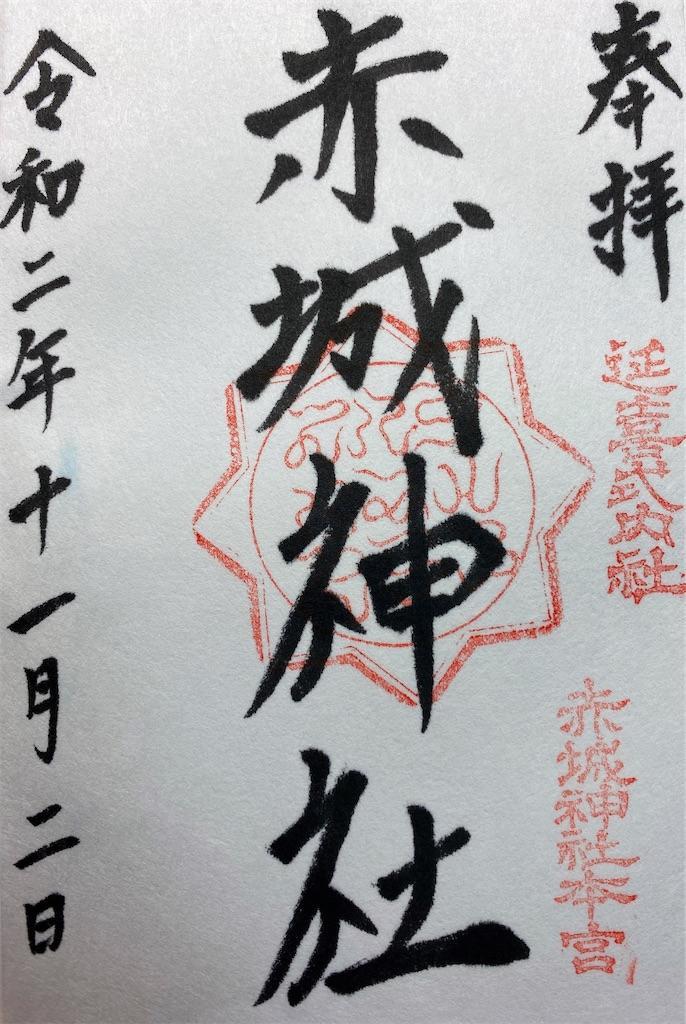 奉拝
延喜式内社
赤城神社本宮
赤城神社
令和二年十一月二日